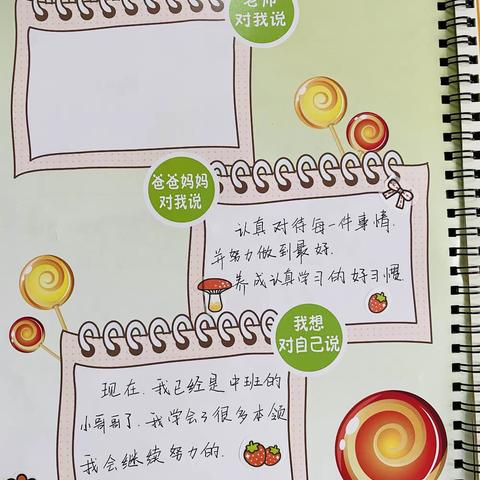 老师
对我说
爸爸妈妈
对我说
认真对待每一件事情.
并努力做到最好.
养成认真学习的好习惯.
我想
对自己说
现在.我已经是中班的
小哥哥了.我学会了很多本领
我会继续努力的.